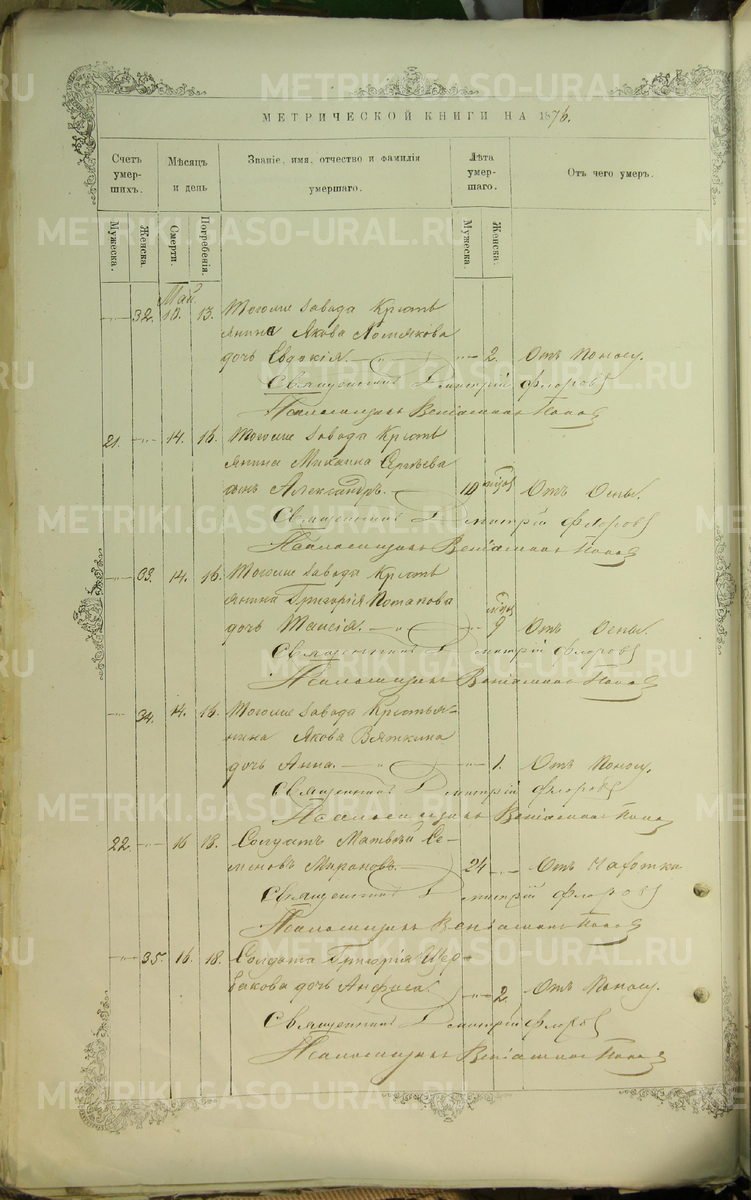 МЕТРИЧЕСКОЙ КНИГИ НА 1876.
Счетъ умершихъ.
Мѣсяцъ и день
Званіе, имя, отчество и фамилія умершаго.
Лѣта умершаго.
Отъ чего умеръ.
Мужеска.
Женска.
Смерти.
Погребенія.
Мужеска.
Женска.
Май
32. 13. Тогоже завода Кресть
янина Якова
дочь Евдокія. 2. Отъ поносу.
Священникъ Дмитрій Флоровъ
Псаломщикъ Веніаминъ Попов
21. 14. 16. Тогоже завода Кресть
янина Михаила Сергѣева
сынъ Александръ. 10 Отъ Оспы.
Священникъ Дмитрій Флоровъ
Псаломщикъ Веніаминъ Попов
33. 14. 16. Тогоже завода Кресть
янина Григорія Потапова
дочь Таисія. 9 Отъ Оспы.
Священникъ Дмитрій Флоровъ
Псаломщикъ Веніаминъ Попов
34. 14. 16. Тогоже завода Крестья-
нина Якова Вяткина
дочь Анна. 1. Отъ поносу.
Священникъ Дмитрій Флоровъ
Псаломщикъ Веніаминъ Попов
22. 16 18. Солдатъ Матвѣй Се-
меновъ Мироновъ. 24 Отъ Чахотки
Священникъ Дмитрій Флоровъ
Псаломщикъ Веніаминъ Попов
35. 16. 18. Солдата Григорія Щер-
бакова дочь Анфиса. 2. Отъ поносу.
Священникъ Дмитрій Флоровъ
Псаломщикъ Веніаминъ Попов
METRIKI.GASO-URAL.RU